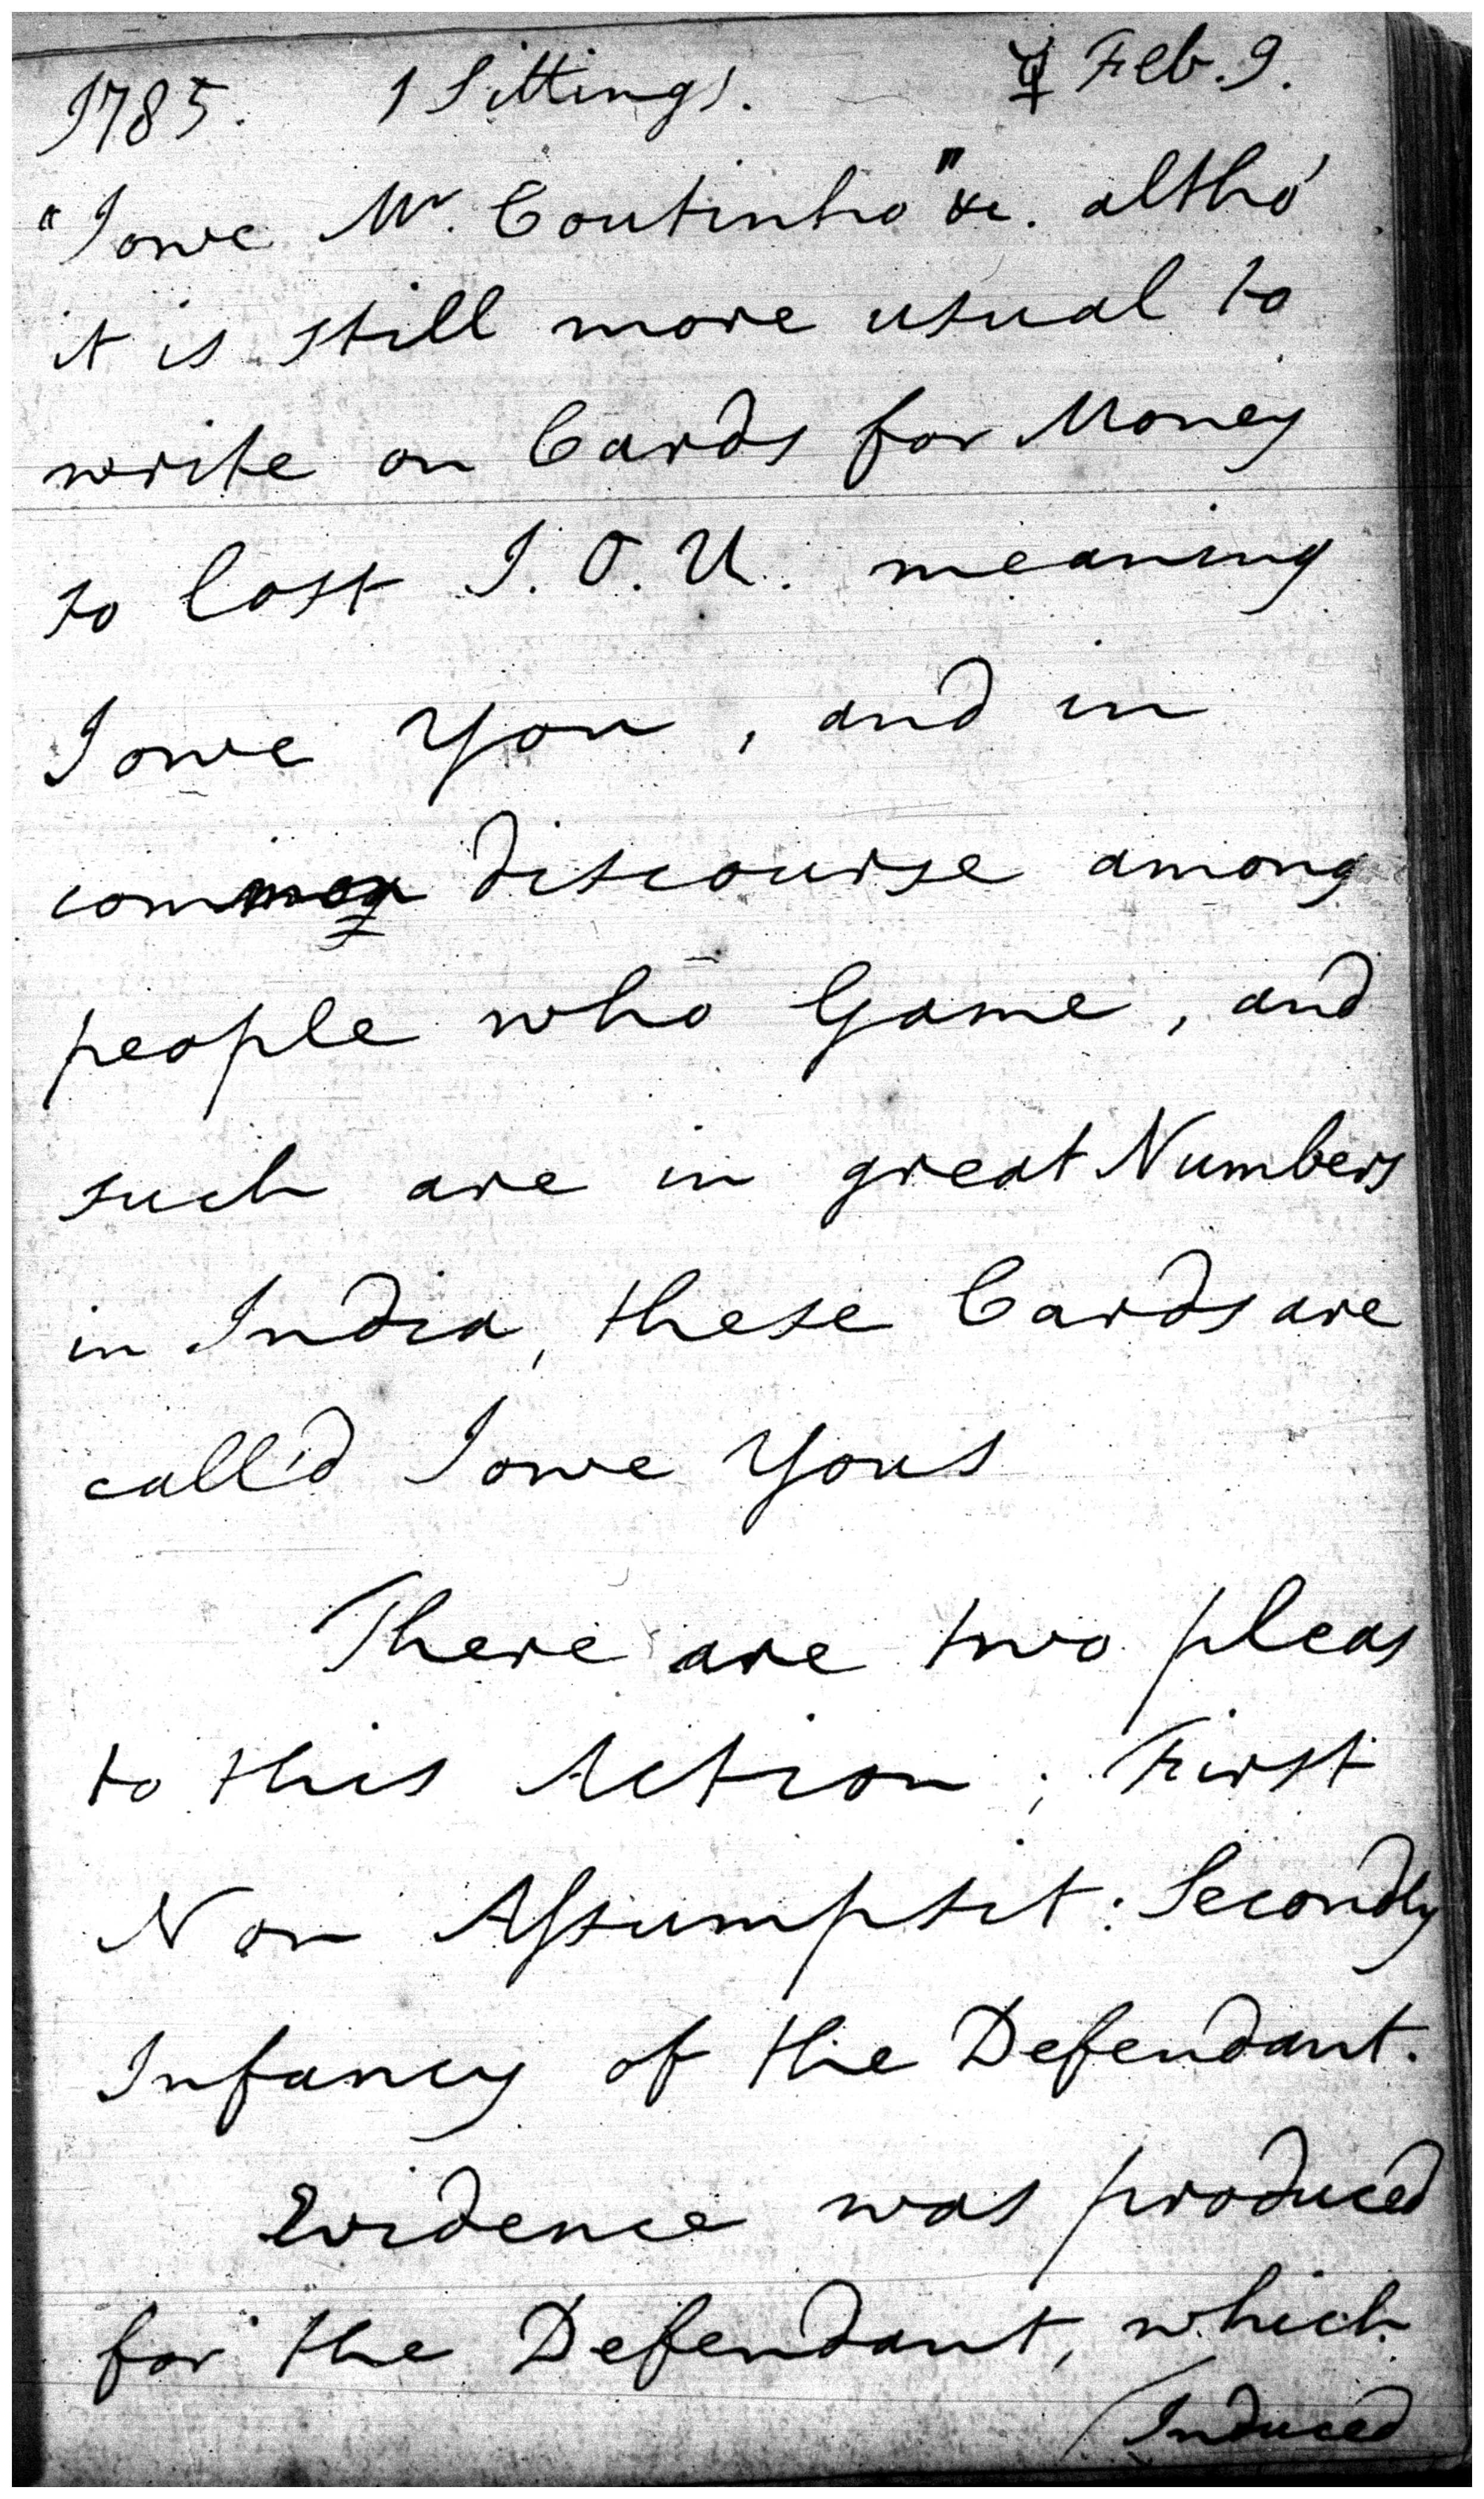 1785. 1 Sittings. ☿ Feb. 9.
"I owe Mr. Coutinho" &c. altho'
it is still more usual to
write on Cards for Money
so lost I.O.U. meaning
I owe You, and in
common discourse among
people who Game, and
such are in great Numbers
in India, these Cards are
call'd I owe Yous
There are two pleas
to this Action; First
Non Assumpsit: Secondly
Infancy of the Defendant.
Evidence was produced
for the Defendant, which
Induced